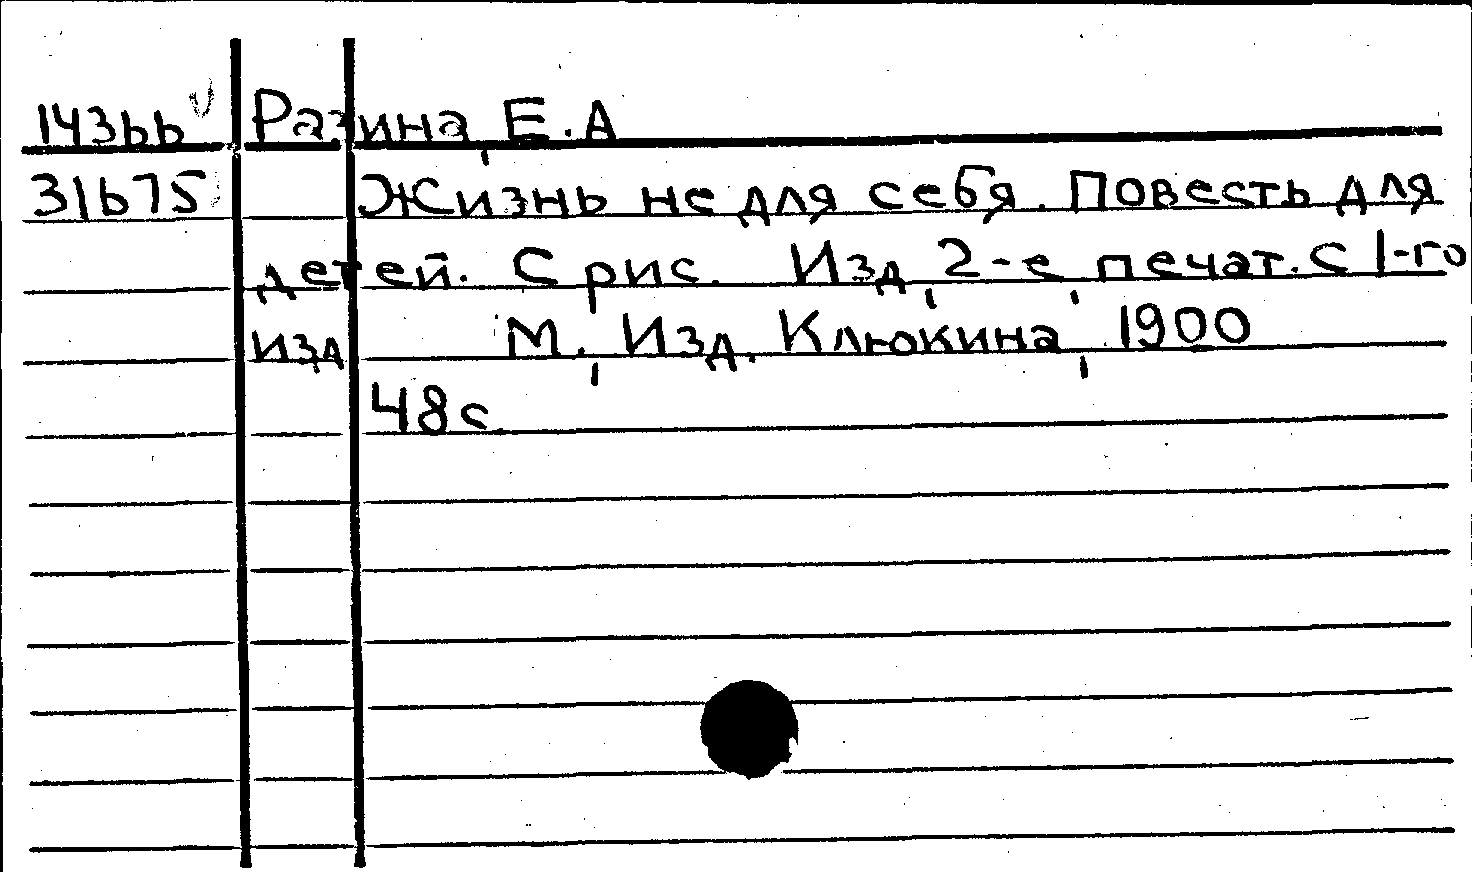 14366 Разина, Е.А
31675 Жизнь не для себя. Повесть для
детей. С рис. Изд, 2-е, печат. с 1-го
изд М., Изд. Клюкина, 1900
48с.